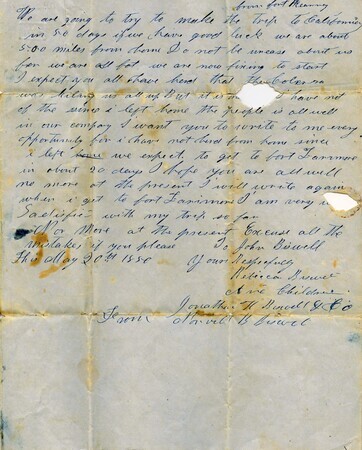 from fort Kearny
We are going to try to make the trip to California
in 50 days if we have good luck we are about
500 miles from home Do not be unease about us
for we are all fat we are now fixing to start
I expect you all have heard that the Colera
was us all up But it is have not
of the since i left home the people is all well
in our company I want you to write to me every
oppertunity for i have not heard from home since
i left home we expect to get to fort Larimore
in about 20 days I hope you are all well
no more at the present I will write again
when i get to fort Larimore I am very well
Sadisfied with my trip so far
No More at the present Excuse all the
mistakes if you please To John
This May 20th 1850 Yours Respectfully
Rebecca
And Children
Jonathan H & Co
From B